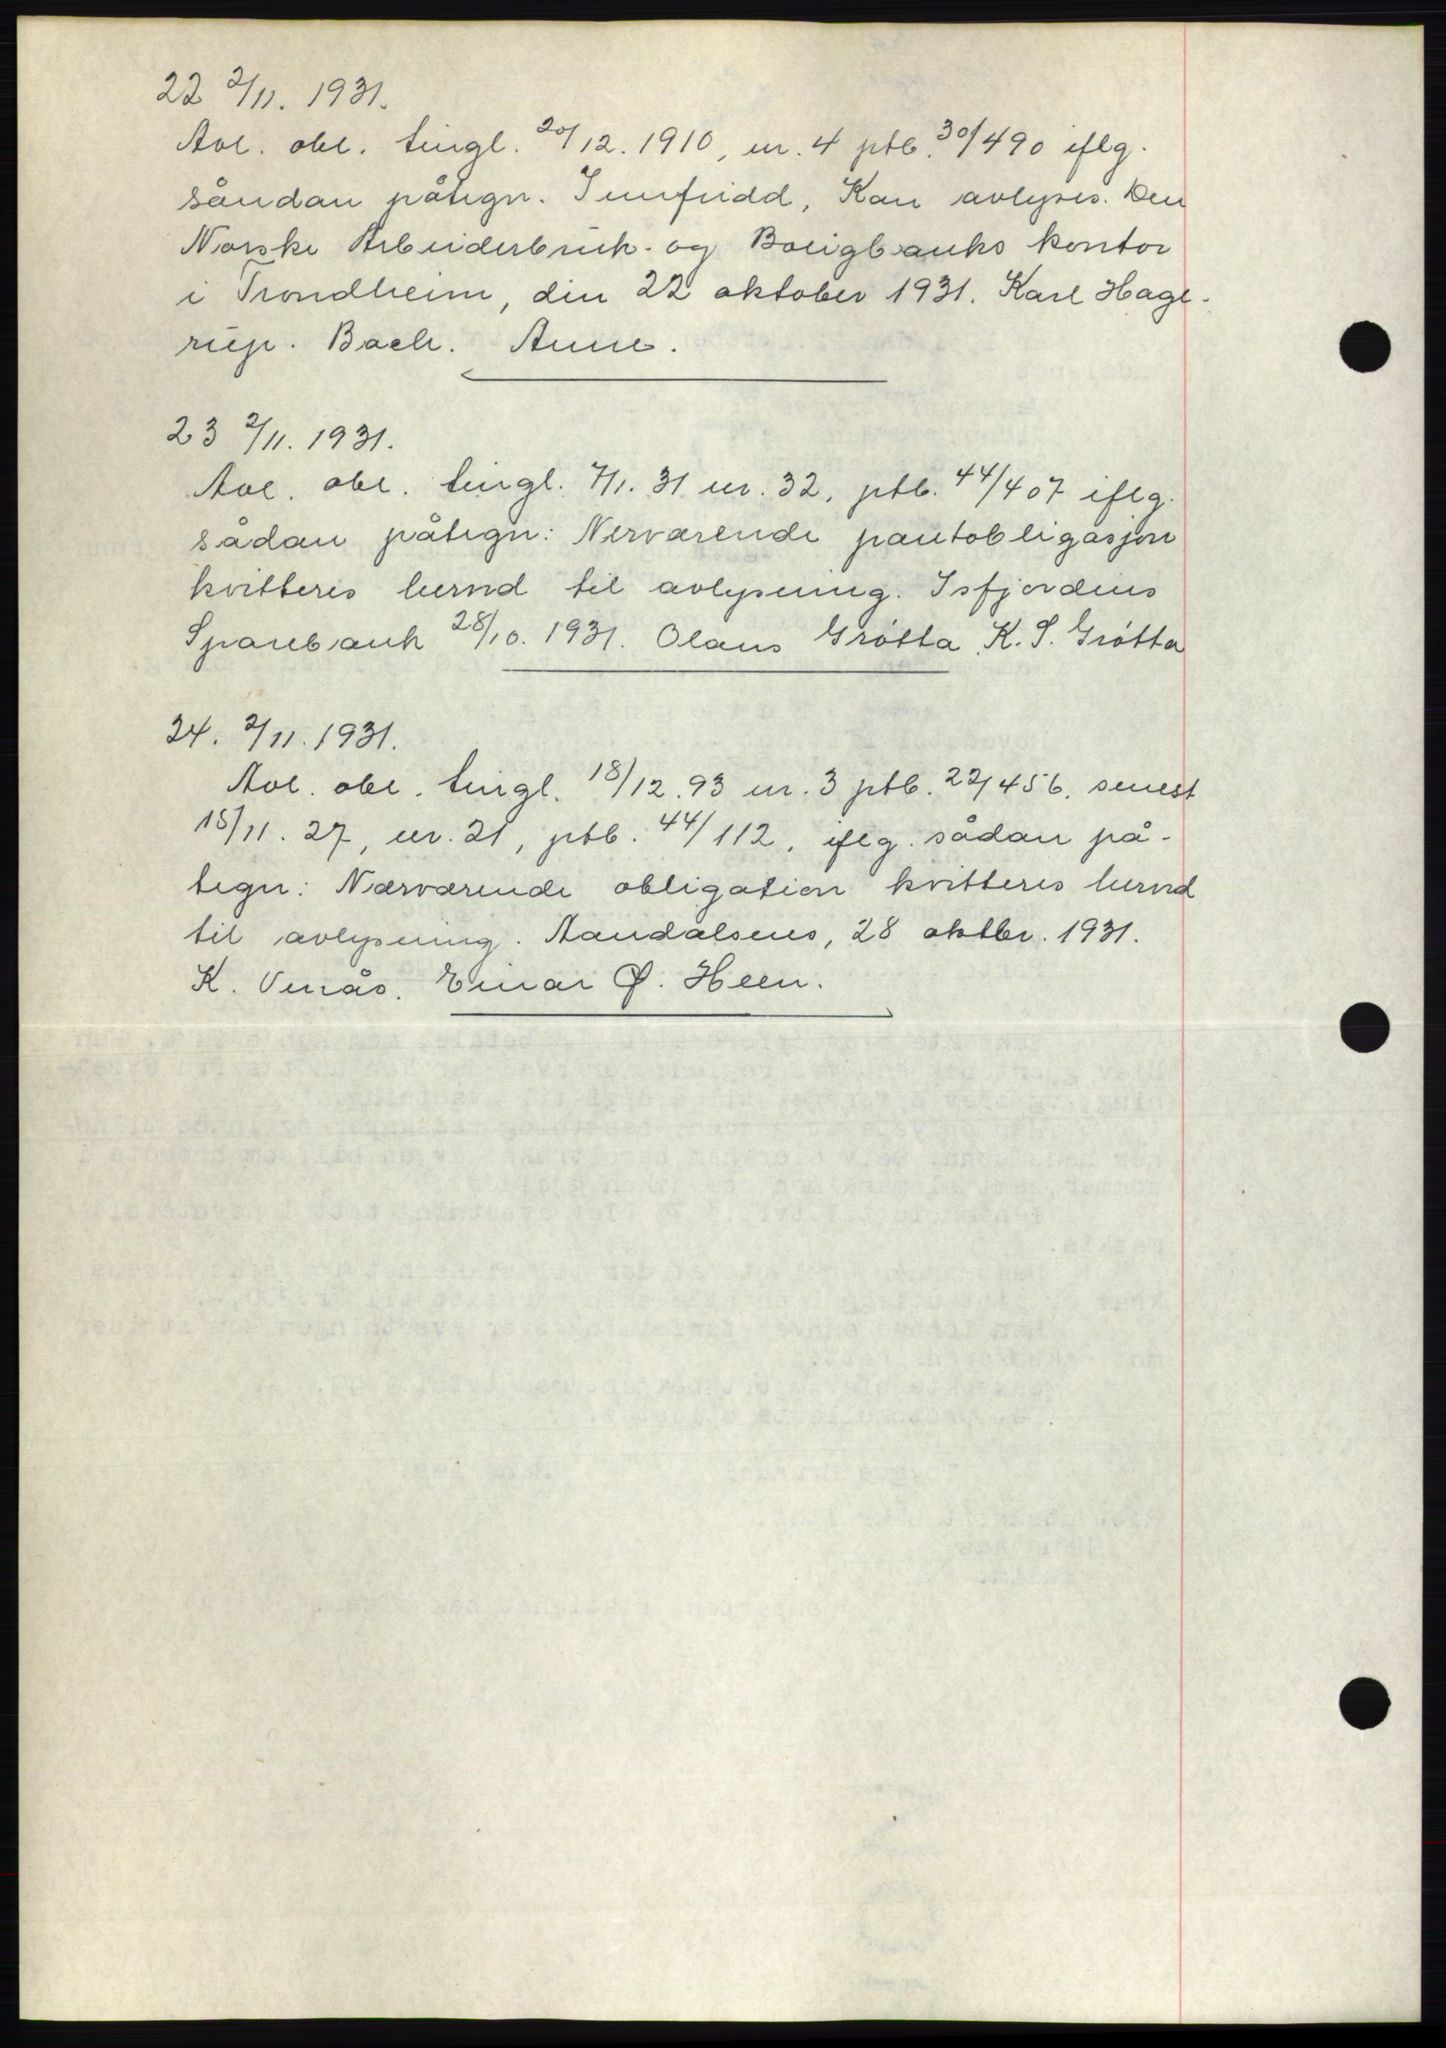 22 2/11. 1931.
Avl. obl. tingl. 20/12. 1910, nr. 4 ptb. 30/490 iflg.
såndan påtegn. Innfridd, Kan avlyses. Den
Norske Arbeiderbruk- og Boligbanks kontor
i Trondheim, den 22 oktober 1931. Karl Hage-
rup. Bach.
23 2/11. 1931.
Avl. obl. tingl. 7/1. 31 nr. 32, ptb. 44/407 iflg.
sådan påtegn: Nerværende pantobligasjon
kvitteres herved til avlysning. Isfjordens
Sparebank 28/10. 1931. Olaus Grøtta K. S. Grøtta
24. 2/11. 1931.
Avl. obl. tingl. 18/12. 93 nr. 3 ptb. 22/456, senest
15/11. 27, nr. 21, ptb. 44/112, iflg. sådan på-
tegn: Nærværende obligation kvitteres herved
til avlysning. Aandalsnes, 28 oktbr. 1931.
K. Venås. Einar Ø. Heen.